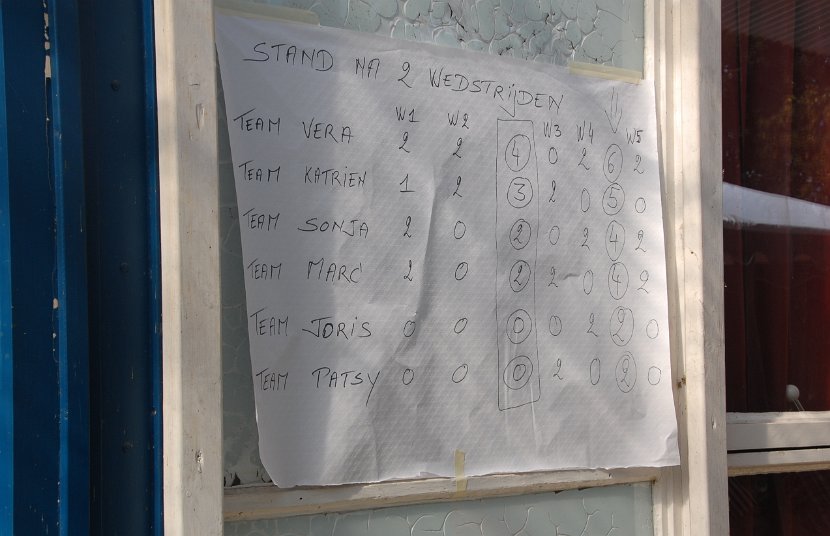 STAND NA 2 WEDSTRIJDEN
W1 W2 W3 W4 W5
TEAM VERA 2 2 4 0 2 6 2
TEAM KATRIEN 1 2 3 2 0 5 0
TEAM SONJA 2 0 2 0 2 4 2
TEAM MARC 2 0 2 2 0 4 2
TEAM JORIS 0 0 0 0 2 2 0
TEAM PATSY 0 0 0 2 0 2 0